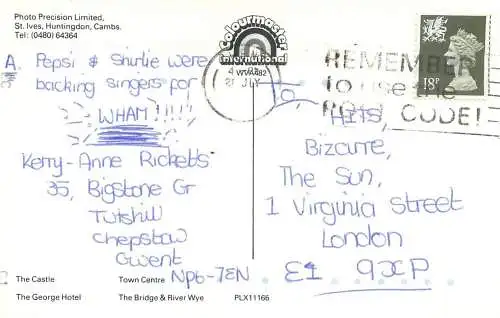 Photo Precision Limited,
St. Ives, Huntingdon, Cambs.
Tel: (0480) 64364
A. Pepsi & Shirlie were
backing singers for
WHAM!!!!
Kerry-Anne Ricketts
35, Bigstone Gr
Tutshill
Chepstow
Gwent
NP6-7EN
The Castle
Town Centre
The George Hotel
The Bridge & River Wye
PLX11166
Colourmaster
International
21 JLY
REMEMBER
to use the
POST CODE!
18P
To
HITS,
Bizarre,
The Sun,
1 Virginia Street
London
E1 9XP